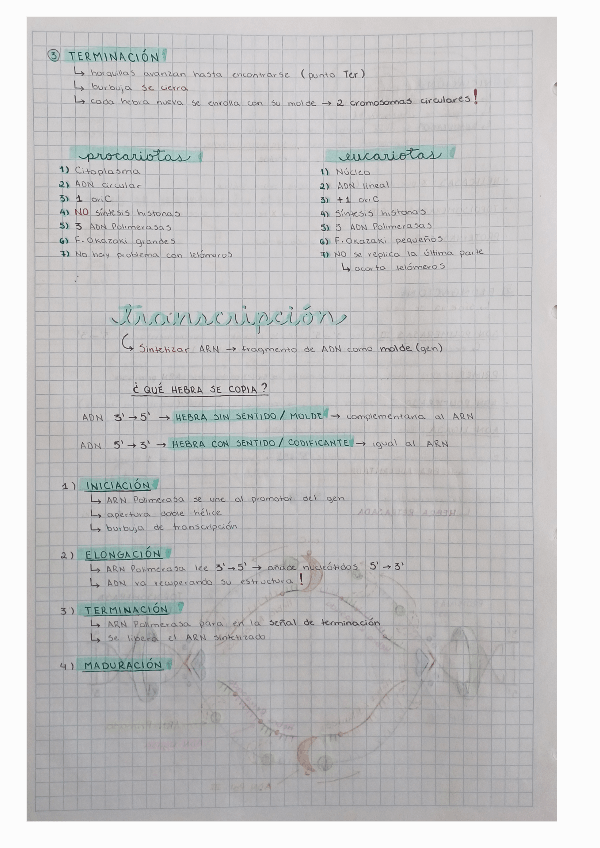 ③ TERMINACIÓN
↳ horquillas avanzan hasta encontrarse (punto Ter)
↳ burbuja se cierra
↳ cada hebra nueva se enrolla con su molde → 2 cromosomas circulares!
procariotas
1) Citoplasma
2) ADN circular
3) 1 oriC
4) NO síntesis histonas
5) 3 ADN Polimerasas
6) F. Okazaki grandes
7) No hay problema con telómeros
eucariotas
1) Núcleo
2) ADN lineal
3) +1 oriC
4) Síntesis histonas
5) 5 ADN Polimerasas
6) F. Okazaki pequeños
7) NO se replica la última parte
↳ acorta telómeros
Transcripción
↳ Sintetizar ARN → fragmento de ADN como molde (gen)
¿QUÉ HEBRA SE COPIA?
ADN 3'→5' → HEBRA SIN SENTIDO / MOLDE → complementaria al ARN
ADN 5'→3' → HEBRA CON SENTIDO / CODIFICANTE → igual al ARN
1) INICIACIÓN
↳ ARN Polimerasa se une al promotor del gen
↳ apertura doble hélice
↳ burbuja de transcripción
2) ELONGACIÓN
↳ ARN Polimerasa lee 3'→5' → añade nucleótidos 5'→3'
↳ ADN va recuperando su estructura!
3) TERMINACIÓN
↳ ARN Polimerasa para en la señal de terminación
↳ Se libera el ARN sintetizado
4) MADURACIÓN